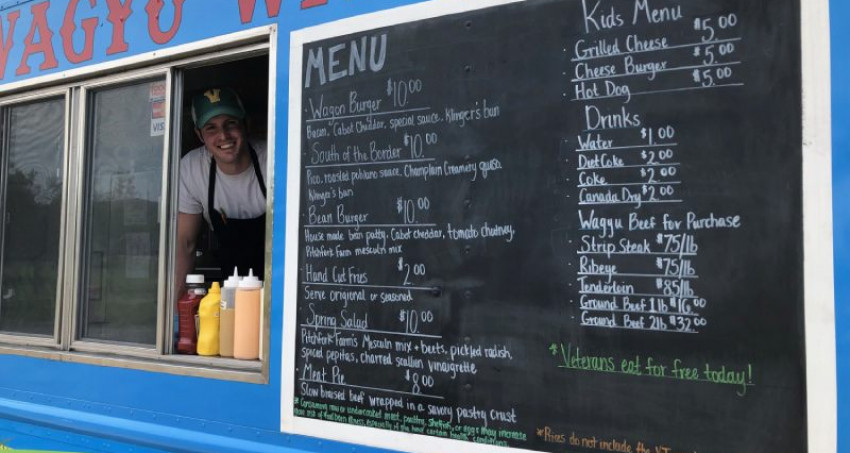 WAGYU W
VISA
MENU
Wagon Burger $10.00
Bacon, Cabot Cheddar, special sauce, Klinger's bun
South of the Border $10.00
Pico, roasted poblano sauce, Champlain Creamery queso
Klinger's bun
Bean Burger $10.00
House made bean patty, Cabot cheddar, tomato chutney,
Pitchfork Farm mesculn mix
Hand Cut Fries $2.00
Serve origional or seasoned
Spring Salad $10.00
Pitchfork Farm's Mesculn mix + beets, pickled radish,
spiced pepitas, charred scallion vinaigrette
Meat Pie $8.00
Slow braised beef wrapped in a savery pastry crust
* Consuming raw or undercooked meat, poultry, shellfish, or eggs may increase
your risk of food born illness, especially if you have certain health conditions.
Kids Menu
Grilled Cheese $5.00
Cheese Burger $5.00
Hot Dog $5.00
Drinks
Water $1.00
Diet Coke $2.00
Coke $2.00
Canada Dry $2.00
Wagyu Beef for Purchase
Strip Steak $75/lb
Ribeye $75/lb
Tenderloin $85/lb
Ground Beef 1lb $16.00
Ground Beef 2lb $32.00
* Veterans eat for free today!
* Prices do not include the VT